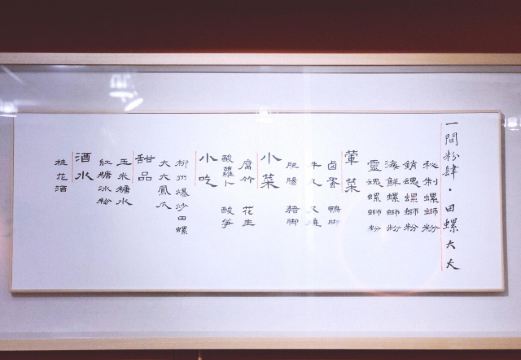 一間粉肆·田螺大夫
秘制螺螄粉
銷魂螺螄粉
海鮮螺螄粉
靈魂螺螄粉
葷菜
鹵蛋 鴨脚
肥腸 豬脚
小菜
腐竹 花生
酸蘿卜 酸笋
小吃
柳州爆沙田螺
大大鳳爪
甜品
玉米糖水
紅糖冰粉
酒水
桂花酒